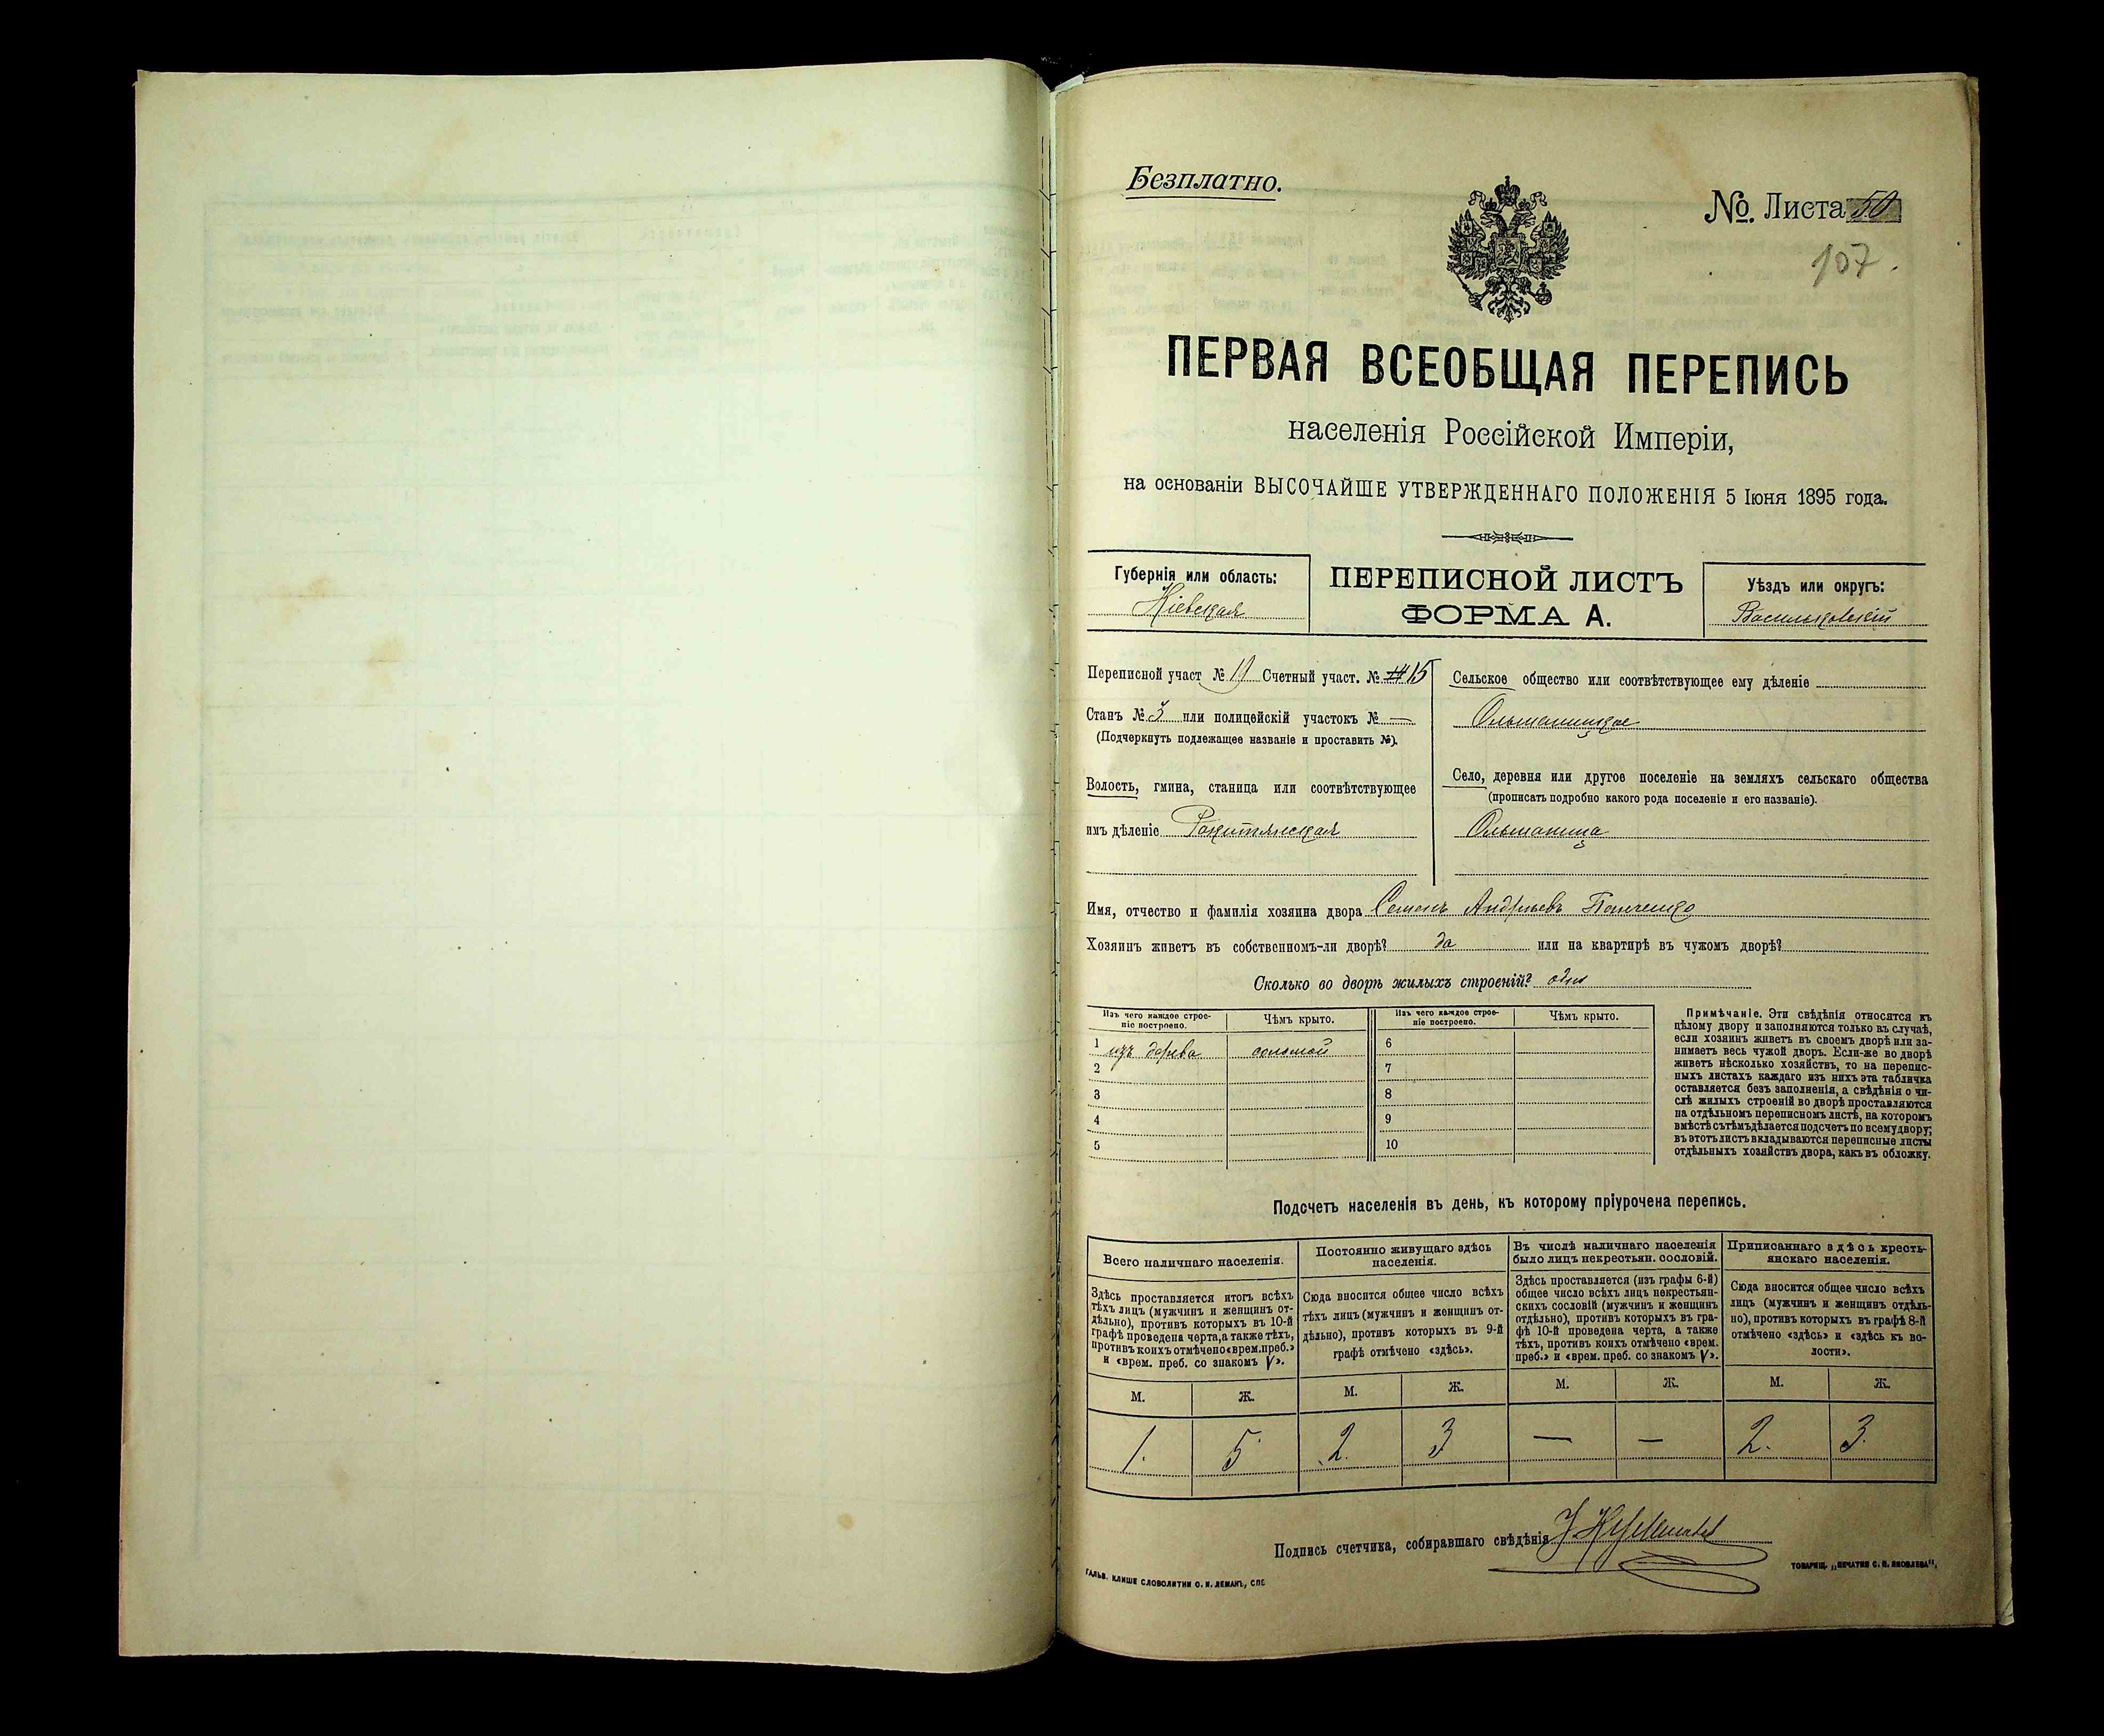 Безплатно.
№ Листа 50
107.
ПЕРВАЯ ВСЕОБЩАЯ ПЕРЕПИСЬ
населенія Россійской Имперіи,
на основаніи ВЫСОЧАЙШЕ УТВЕРЖДЕННАГО ПОЛОЖЕНІЯ 5 Іюня 1895 года.
Губернія или область:
Кіевская
ПЕРЕПИСНОЙ ЛИСТЪ
ФОРМА А.
Уѣздъ или округъ:
Васильковскій
Переписной участ № 19 Счетный участ. № 15
Станъ № 3 или полицейскій участокъ № —
(Подчеркнуть подлежащее названіе и проставить №).
Волость, гмина, станица или соотвѣтствующее
имъ дѣленіе Рокитянская
Сельское общество или соотвѣтствующее ему дѣленіе
Ольшаницкое
Село, деревня или другое поселеніе на земляхъ сельскаго общества
(прописать подробно какого рода поселеніе и его названіе).
Ольшаница
Имя, отчество и фамилія хозяина двора Семенъ Андріевъ Панченко
Хозяинъ живетъ въ собственномъ-ли дворѣ? да или на квартирѣ въ чужомъ дворѣ?
Сколько во дворѣ жилыхъ строеній? одно
Изъ чего каждое строе-
ніе построено.
Чѣмъ крыто.
Изъ чего каждое строе-
ніе построено.
Чѣмъ крыто.
1 изъ дерева соломой
2
3
4
5
6
7
8
9
10
Примѣчаніе. Эти свѣдѣнія относятся къ
цѣлому двору и заполняются только въ случаѣ,
если хозяинъ живетъ въ своемъ дворѣ или за-
нимаетъ весь чужой дворъ. Если-же во дворѣ
живетъ нѣсколько хозяйствъ, то на перепис-
ныхъ листахъ каждаго изъ нихъ эта табличка
оставляется безъ заполненія, а свѣдѣнія о чи-
слѣ жилыхъ строеній во дворѣ проставляются
на отдѣльномъ переписномъ листѣ, на которомъ
вмѣстѣ съ тѣмъ дѣлается подсчетъ по всему двору;
въ этотъ листъ вкладываются переписные листы
отдѣльныхъ хозяйствъ двора, какъ въ обложку.
Подсчетъ населенія въ день, къ которому пріурочена перепись.
Всего наличнаго населенія.
Здѣсь проставляется итогъ всѣхъ
тѣхъ лицъ (мужчинъ и женщинъ от-
дѣльно), противъ которыхъ въ 10-й
графѣ проведена черта, а также тѣхъ,
противъ коихъ отмѣчено «врем. преб.»
и «врем. преб. со знакомъ V».
Постоянно живущаго здѣсь
населенія.
Сюда вносится общее число всѣхъ
тѣхъ лицъ (мужчинъ и женщинъ от-
дѣльно), противъ которыхъ въ 9-й
графѣ отмѣчено «здѣсь».
Въ числѣ наличнаго населенія
было лицъ некрестьян. сословій.
Здѣсь проставляется (изъ графы 6-й)
общее число всѣхъ лицъ некрестьян-
скихъ сословій (мужчинъ и женщинъ
отдѣльно), противъ которыхъ въ гра-
фѣ 10-й проведена черта, а также
тѣхъ, противъ коихъ отмѣчено «врем.
преб.» и «врем. преб. со знакомъ V».
Приписаннаго здѣсь кресть-
янскаго населенія.
Сюда вносится общее число всѣхъ
лицъ (мужчинъ и женщинъ отдѣль-
но), противъ которыхъ въ графѣ 8-й
отмѣчено «здѣсь» и «здѣсь къ во-
лости».
М. Ж. М. Ж. М. Ж. М. Ж.
1. 5 2. 3 — — 2. 3.
Подпись счетчика, собиравшаго свѣдѣнія
ГАЛЬВ. КЛИШЕ СЛОВОЛИТНИ О. И. ЛЕМАНЪ, СПБ
ТОВАРИЩ. „ПЕЧАТНЯ С. П. ЯКОВЛЕВА“,